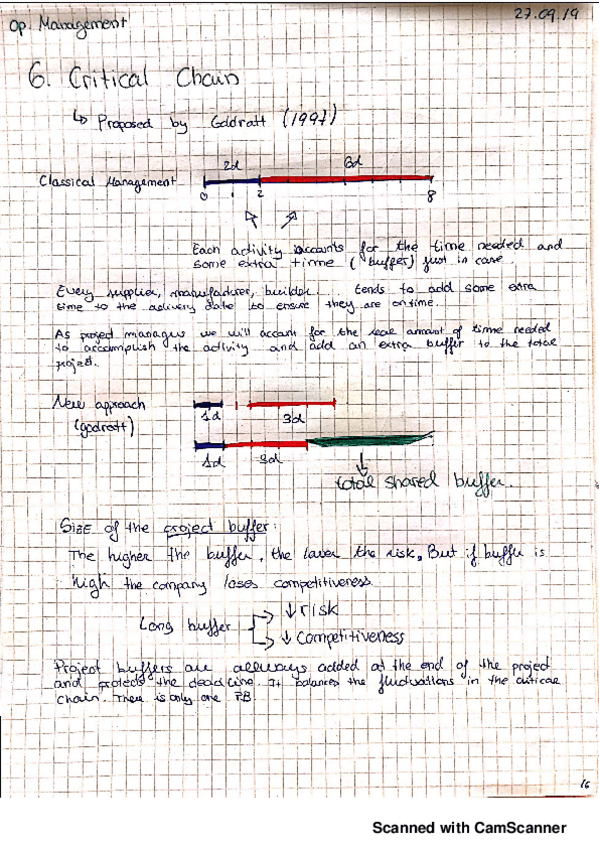 Op. Management
27.09.19
6. Critical Chain
↳ Proposed by Goldratt (1997)
2d 6d
Classical Management
0 1 2 8
Each activity accounts for the time needed and
some extra time (buffer) just in case.
Every supplier, manufacturer, builder... tends to add some extra
time to the delivery date to ensure they are on time.
As project manager we will account for the real amount of time needed
to accomplish the activity and add an extra buffer to the total
project.
New approach
(godratt)
1d 3d
1d 3d
total shared buffer.
Size of the project buffer:
The higher the buffer, the lower the risk, But if buffer is
high the company loses competitiveness
Long buffer
↓ risk
↓ Competitiveness
Project buffers are allways added at the end of the project
and protects the deadline. It balances the fluctuations in the critical
chain. There is only one PB
16
Scanned with CamScanner